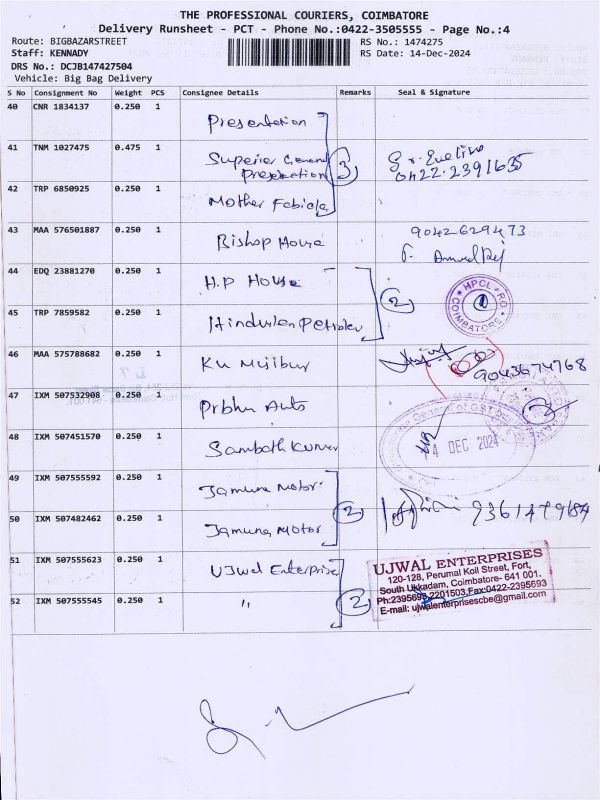 THE PROFESSIONAL COURIERS, COIMBATORE
Delivery Runsheet - PCT - Phone No.:0422-3505555 - Page No.:4
Route: BIGBAZARSTREET
Staff: KENNADY
RS No.: 1474275
RS Date: 14-Dec-2024
DRS No.: DCJB147427504
Vehicle: Big Bag Delivery
S No Consignment No Weight PCS Consignee Details Remarks Seal & Signature
40 CNR 1834137 0.250 1 Presentation
41 TNM 1027475 0.475 1 Superier General Presentation 3 Sr. Eveline
0422-2391635
42 TRP 6850925 0.250 1 Mother Fabiola
43 MAA 576501887 0.250 1 Bishop House 9042629473
44 EDQ 23881270 0.250 1 H.P House 2 HPCL RO COIMBATORE
45 TRP 7859582 0.250 1 Hindustan Petroleu
46 MAA 575788682 0.250 1 Ku Mujibur 9043674768
47 IXM 507532908 0.250 1 Prbhu Auto 2
48 IXM 507451570 0.250 1 Sambath Kumar 14 DEC 2024
49 IXM 507555592 0.250 1 Jamuna Motor 2
50 IXM 507482462 0.250 1 Jamuna Motor
51 IXM 507555623 0.250 1 Ujwal Enterprise 2
52 IXM 507555545 0.250 1 "
UJWAL ENTERPRISES
120-128, Perumal Koil Street, Fort,
South Ukkadam, Coimbatore- 641 001.
Ph:2395693,2201503,Fax:0422-2395693
E-mail: ujwalenterprisescbe@gmail.com